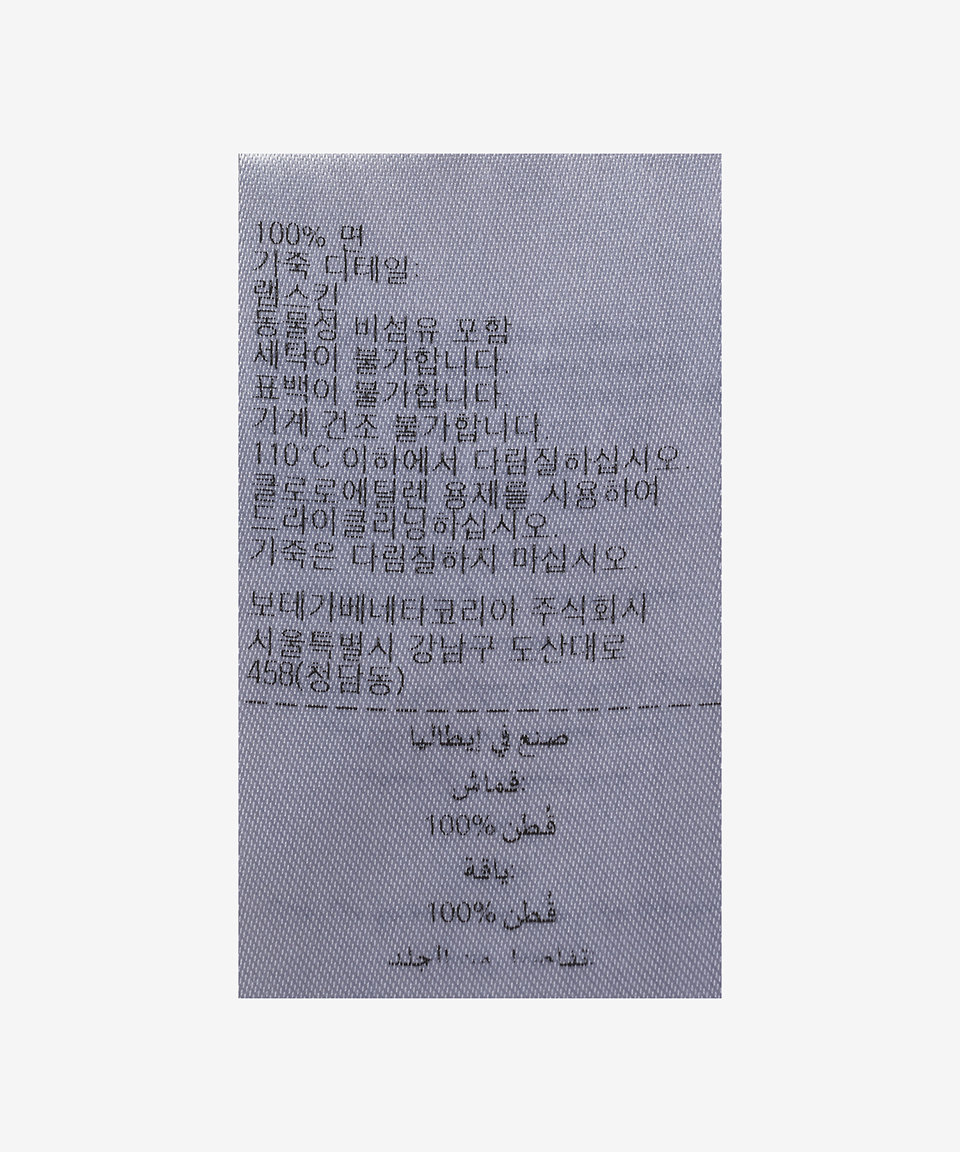 100% 면
가죽 디테일:
램스킨
동물성 비섬유 포함
세탁이 불가합니다.
표백이 불가합니다.
기계 건조 불가합니다.
110°C 이하에서 다림질하십시오.
클로로에틸렌 용제를 사용하여
드라이클리닝하십시오.
가죽은 다림질하지 마십시오.
보테가베네타코리아 주식회사
서울특별시 강남구 도산대로
458(청담동)
صنع في إيطاليا
قماش:
100% قُطن
ياقة:
100% قُطن
تفاصيل من الجلد